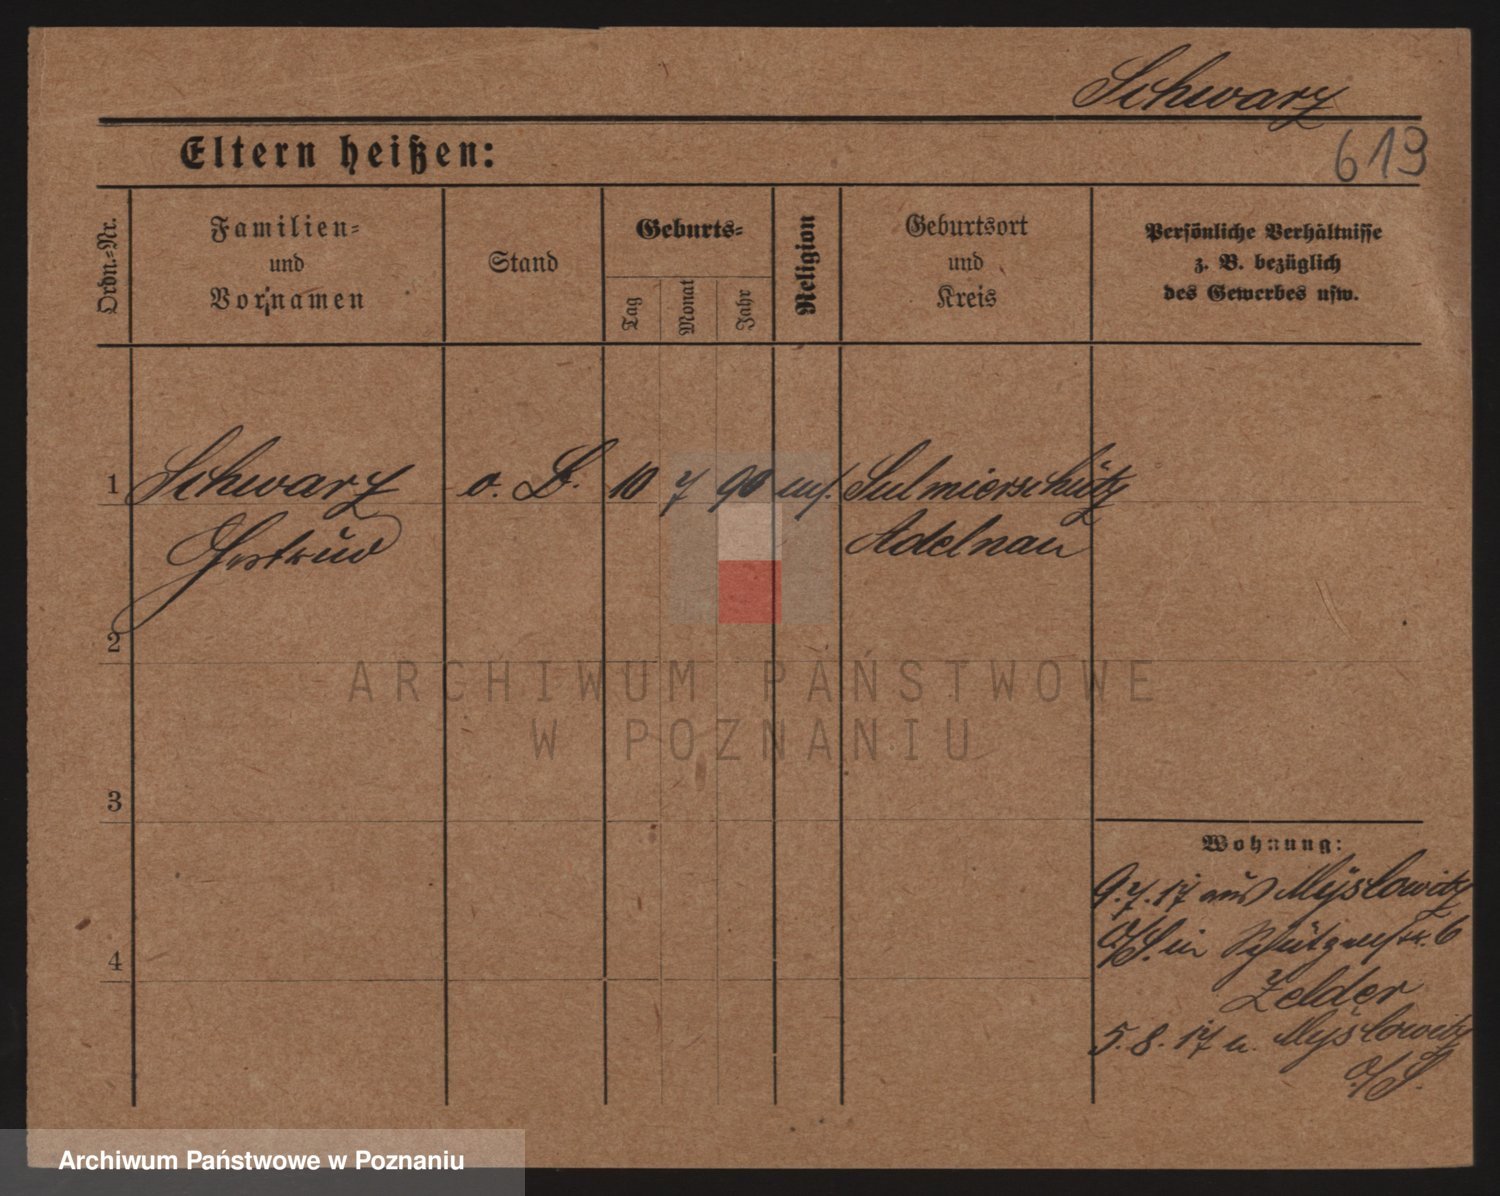 Schwarz
619
Eltern heißen:
Ordn.-Nr.
Familien-
und
Vornamen
Stand
Geburts-
Tag
Monat
Jahr
Religion
Geburtsort
und
Kreis
Persönliche Verhältnisse
z. B. bezüglich
des Gewerbes usw.
1 Schwarz o. B. 10 7 90 Sulmierschütz
Gertrud Adelnau
2
3
4
Wohnung:
9.7.17 aus Myslowitz
O/S. in Schützenstr. 6
Zelder
5.8.17 n. Myslowitz
O/S.
ARCHIWUM PAŃSTWOWE
W POZNANIU
Archiwum Państwowe w Poznaniu